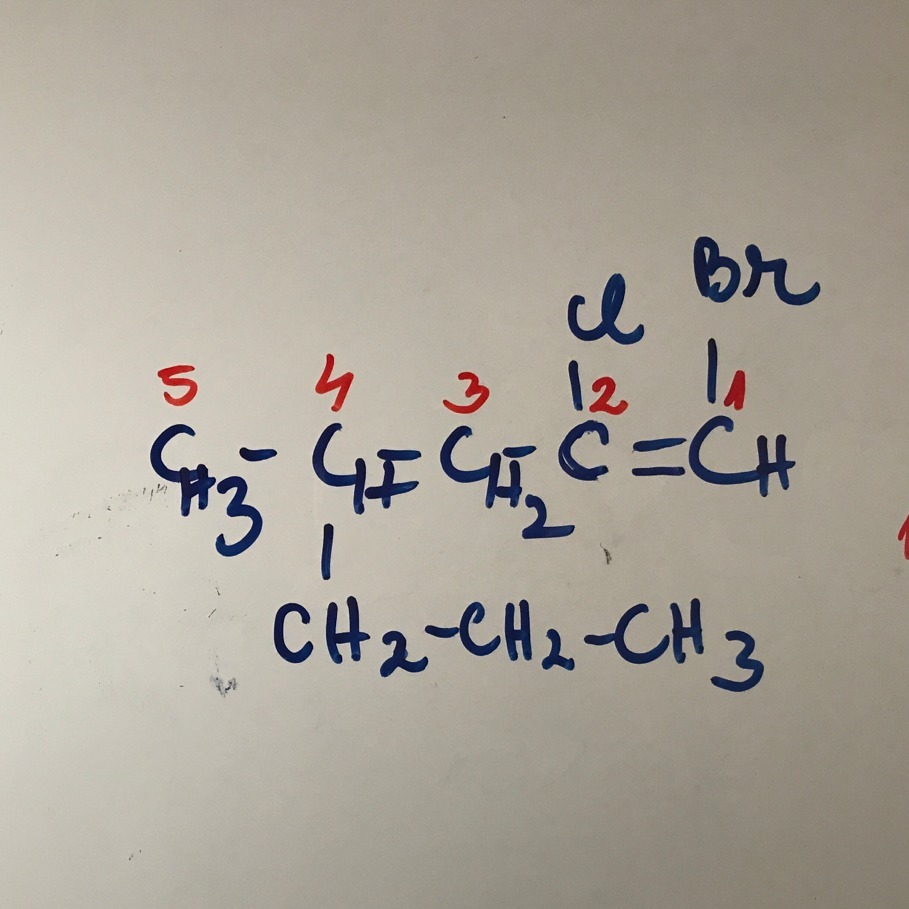 Cl Br
5 4 3 2 1
CH3-CH-CH2-C=CH
CH2-CH2-CH3